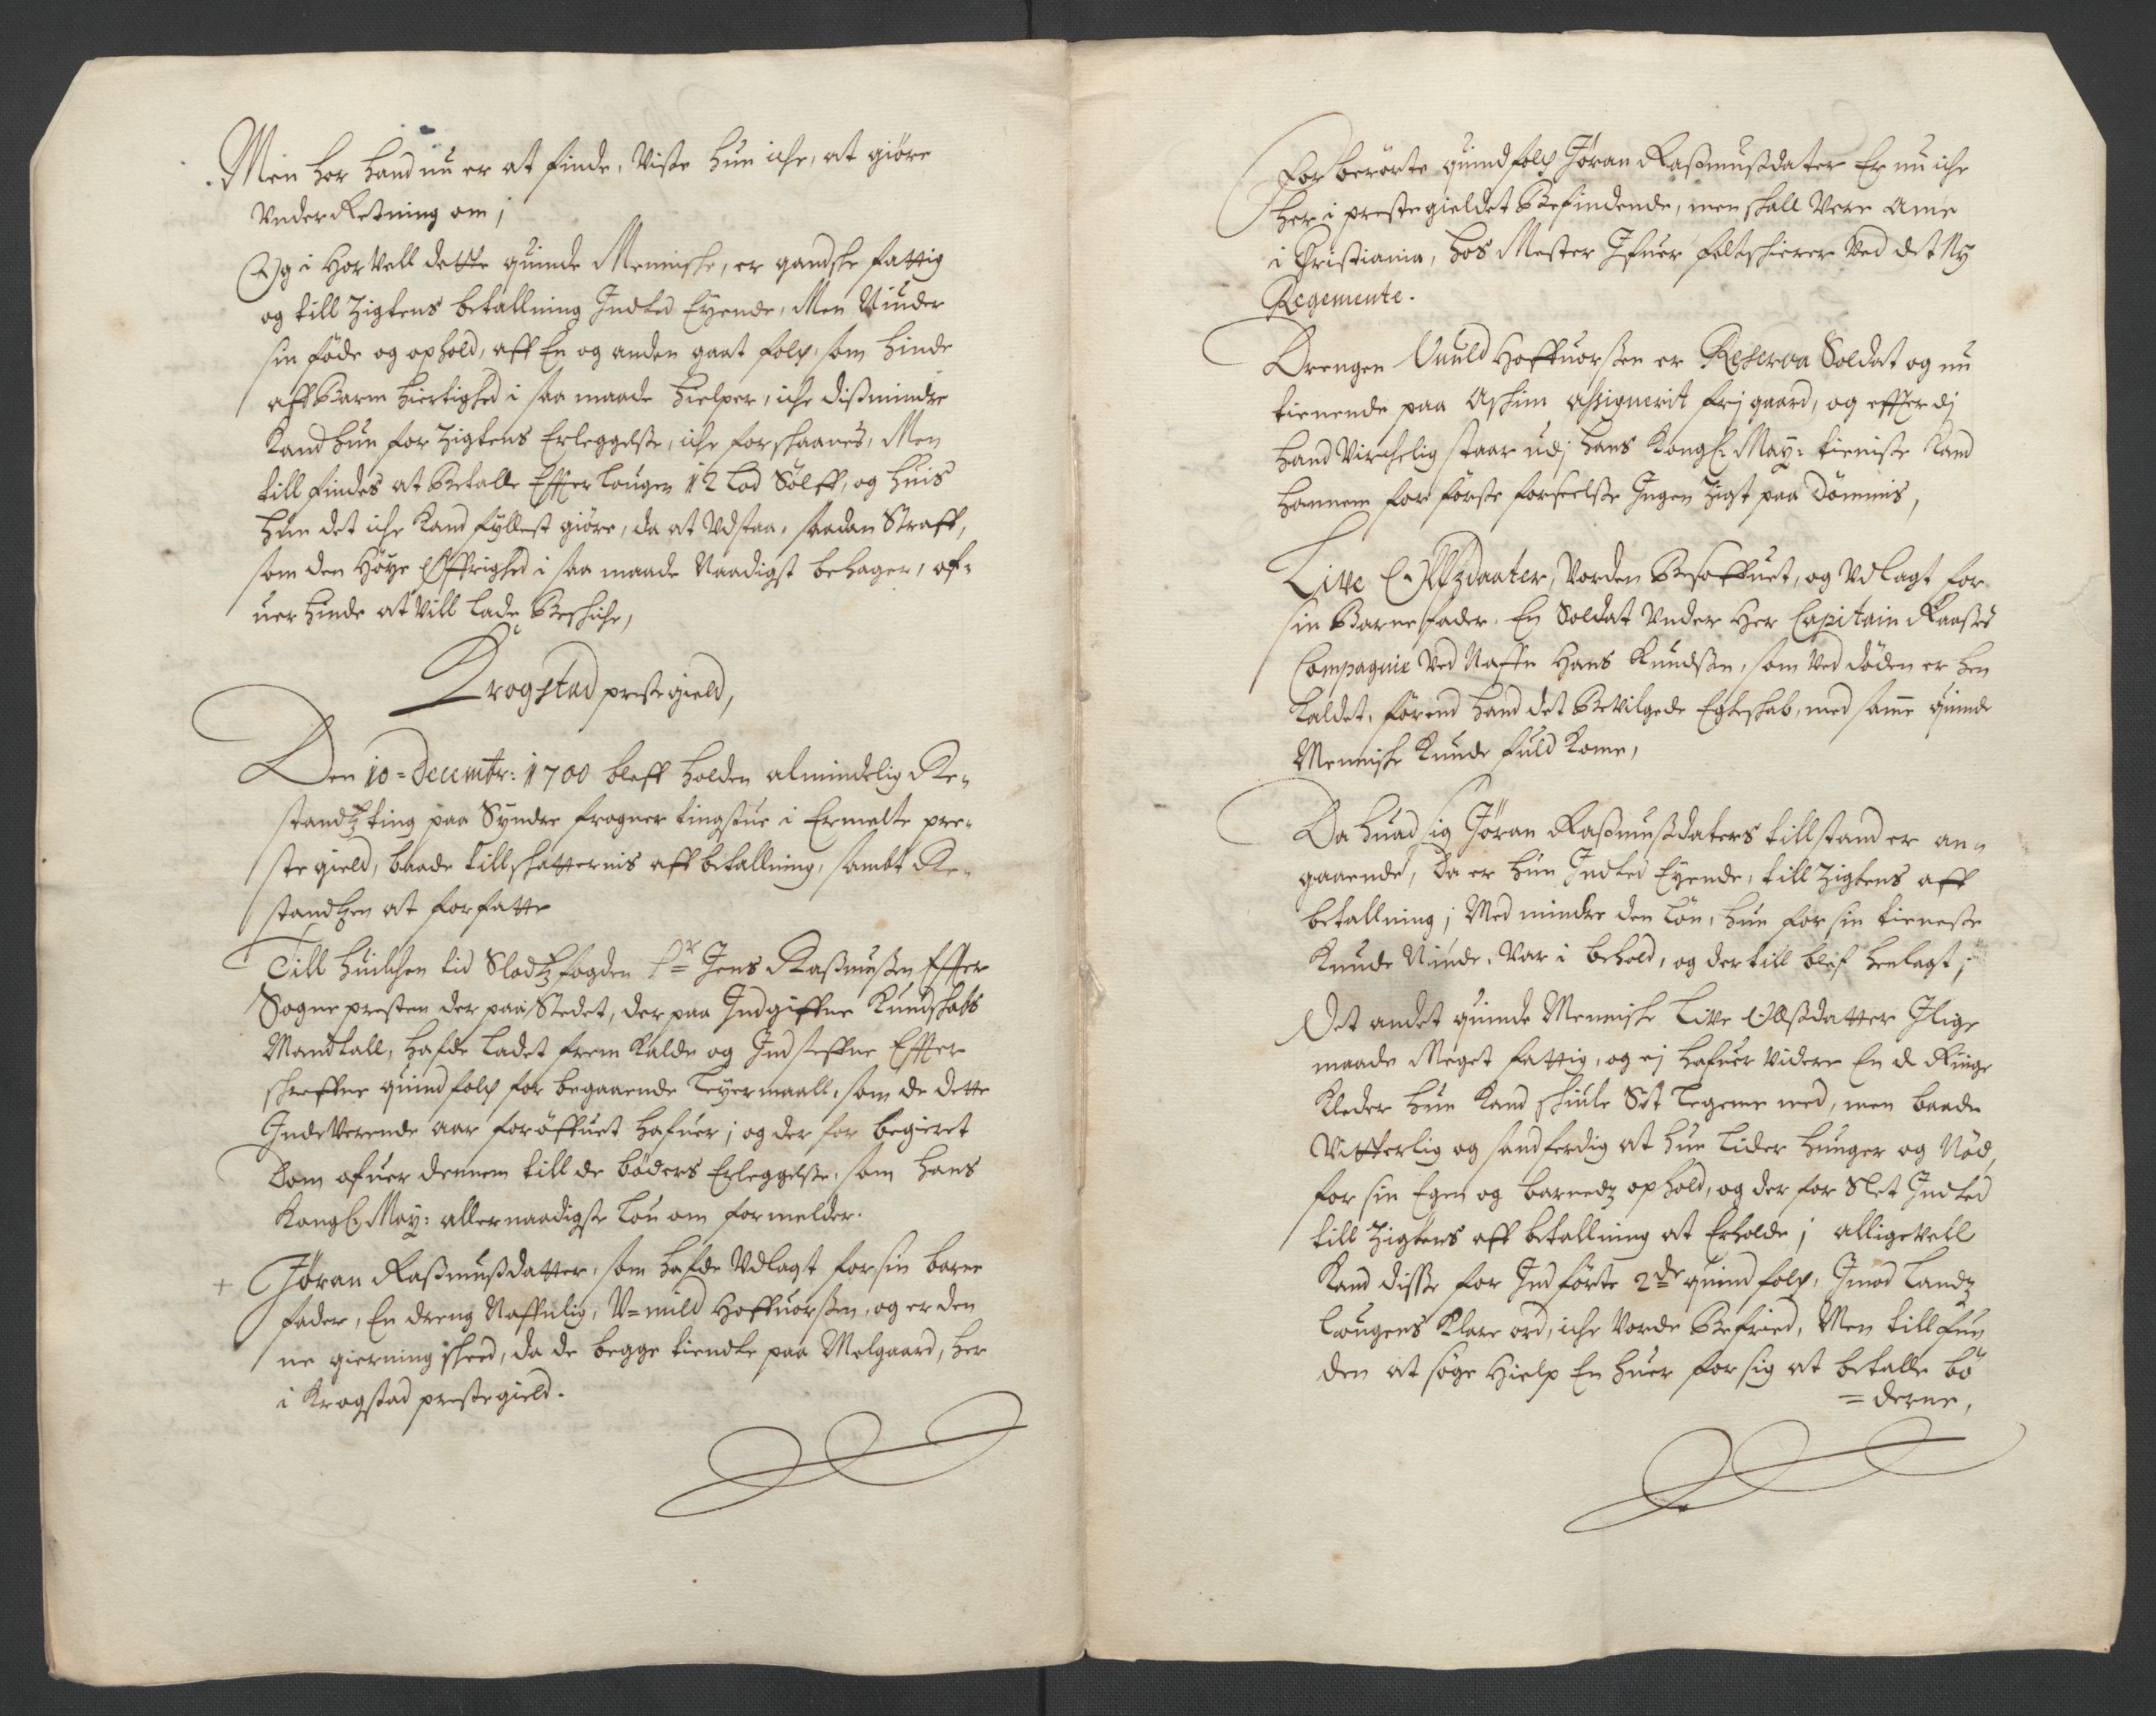 Men hor hand nu er at finde, Viste hun iche, at giöre
Vnder Retning om;
Og i hor Vell dette quinde Menniske, er gandske fattig
og till Zigtens betallning Indted Eyende, Men Niuder
sin föde og ophold, aff En og anden gaat folch, som hinde
aff Barmhiertighed i saa maade hielper, iche dißmindre
Kand hun for Zigtens Erleggelse, iche forskaanes, Men
till findes at Betalle Effter Lougen 12 Lod Sölff, og huis
hun det iche Kand fyllest giöre, da at Vdstaa, saadan Straff,
som den Höye Øffrighed i saa maade Naadigst behager, of-
uer hinde at Vill Lade Beskiche,
Krogstad prestegield,
Den 10 = Decembr: 1700 bleff holden almindelig Re-
standtz ting paa Syndre frogner tingstue i Ermelte pre-
stegield, baade till skatternis aff betallning, sambt Re-
standtzen at forfatte
Till huilchen tid Slodtzfogden Sr Jens Raßmußen Effter
Sognepresten der paa Stedet, der paa Indgiffne Kundskabs
Mandtall, hafde Ladet frem Kalde og Indsteffne Effter
skreffne quindfolch for begaaende Leyermaall, som de dette
Indeverende aar foröffuet hafuer; og der for begieret
Dom ofuer dennem till de böders Erleggelse, som hans
Kongl: May: allernaadigste Lou om formelder.
+ Jöran Raßmußdatter, som hafde Vdlagt for sin barne
fader, En dreng Naffnlig, V=nuld Hoffuorßen, og er den
ne gierning skeed, da de begge tiendte paa Molgaard, her
i Krogstad prestegield.
For berörte quindfolch Jöran Raßmußdater Er nu iche
her i prestegieldet Befindende, men skall Vere Ame
i Christiania, hos Mester Ifuer feltskierer Ved det Ny
Regemente.
Drengen Vnuld Hoffuorßen er Reserva Soldat og nu
tienende paa Askim assignerit frj gaard, og effterdj
hand Virchelig staar udj hans Kongl: May: tieniste Kand
hannem for förste forseelse Ingen Zigt paa Dömmis,
Live Ollzdaater, Vorden Besoffuet, og Vdlagt for
sin Barnefader, En Soldat Vnder Her Capitain Raasis
Compagnie Ved Naffn Hans Knudsen, som Ved döden er hen
kaldet, förend hand det Bevilgede Egteskab, med same quinde
Menniske Kunde fuld Kome,
Da huad sig Jöran Raßmußdaters tillstand er an-
gaaende, Da er hun Indted Eyende, till Zigtens aff
betallning; Med mindre den Lön, hun for sin tieneste
Kunde Niude, Var i behold, og der till blef henlagt;
Det andet quinde Menniske Live Olßdatter Ilige
maade Meget fattig, og ej hafuer Videre End Ringe
Kleder hun Kand skiule Sit Legeme med, men baade
Vitterlig og sandferdig at hun Lider hunger og Nöd,
for sin Egen og barnedtz ophold, og der for Slet Indted
till Zigtens aff betallning at Erholde; alligevell
Kand disse for Indförte 2de quindfolch, Imod Landtz
Lougens Klare ord, iche Vorde Befried, Men till fun
den at söge Hielp En huer for sig at betalle bö
= derne,